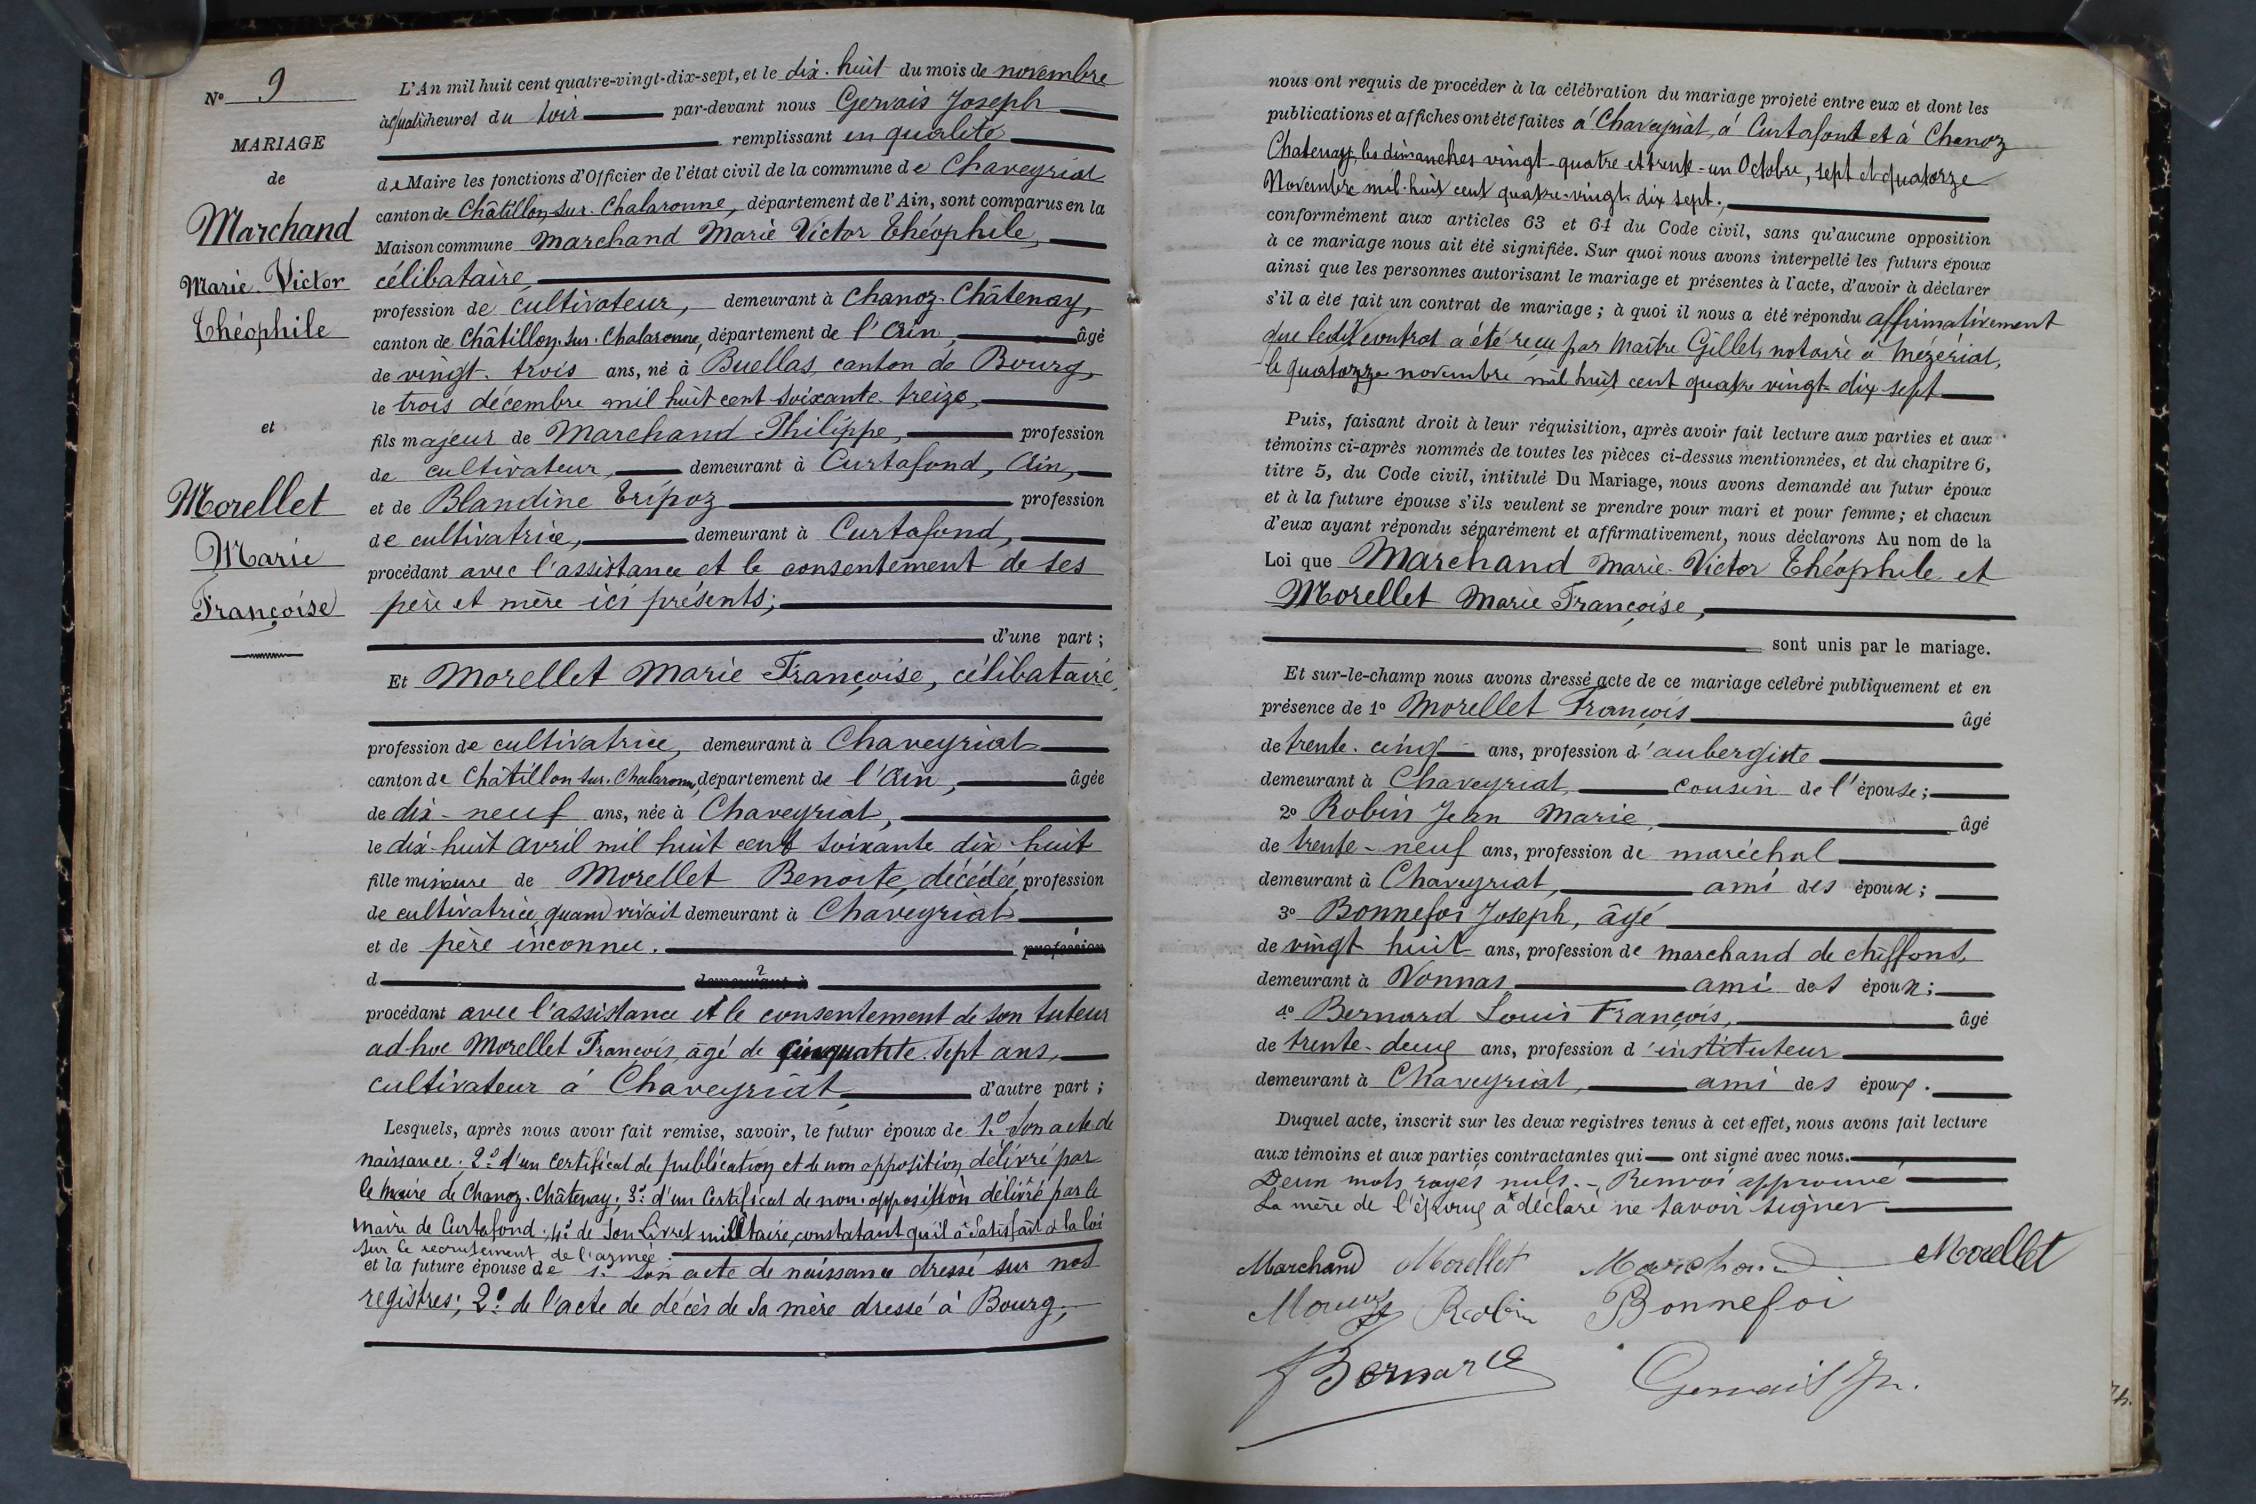 N° 9
MARIAGE
de
Marchand
Marie-Victor
Théophile
et
Morellet
Marie
Françoise
L'An mil huit cent quatre-vingt-dix-sept, et le dix-huit du mois de novembre
à quatre heures du soir par-devant nous Gervais Joseph
remplissant en qualité
de Maire les fonctions d'Officier de l'état civil de la commune de Chaveyriat
canton de Châtillon-sur-Chalaronne, département de l'Ain, sont comparus en la
Maison commune Marchand Marie Victor Théophile,
célibataire,
profession de cultivateur, demeurant à Chanoz-Châtenay,
canton de Châtillon-sur-Chalaronne, département de l'Ain, âgé
de vingt-trois ans, né à Buellas, canton de Bourg,
le trois décembre mil huit cent soixante treize,
fils majeur de Marchand Philippe, profession
de cultivateur, demeurant à Curtafond, Ain,
et de Blandine Tripoz profession
de cultivatrice, demeurant à Curtafond,
procédant avec l'assistance et le consentement de ses
père et mère ici présents;
d'une part;
Et Morellet Marie Françoise, célibataire,
profession de cultivatrice, demeurant à Chaveyriat
canton de Châtillon-sur-Chalaronne, département de l'Ain, âgée
de dix-neuf ans, née à Chaveyriat,
le dix-huit avril mil huit cent soixante dix-huit
fille mineure de Morellet Benoite, décédée, profession
de cultivatrice, quand vivait demeurant à Chaveyriat
et de père inconnu. profession
d demeurant à
procédant avec l'assistance et le consentement de son tuteur
ad-hoc Morellet François, âgé de cinquante-sept ans,
cultivateur à Chaveyriat, d'autre part;
Lesquels, après nous avoir fait remise, savoir, le futur époux de 1° Son acte de
naissance; 2° d'un certificat de publication et de non opposition délivré par
le maire de Chanoz-Châtenay; 3° d'un certificat de non-opposition délivré par le
maire de Curtafond; 4° de son Livret militaire, constatant qu'il a satisfait à la loi
sur le recrutement de l'armée.
et la future épouse de 1° son acte de naissance dressé sur nos
registres; 2° de l'acte de décès de sa mère dressé à Bourg;
nous ont requis de procéder à la célébration du mariage projeté entre eux et dont les
publications et affiches ont été faites à Chaveyriat, à Curtafond et à Chanoz
Chatenay, les dimanches vingt-quatre et trente-un Octobre, sept et quatorze
Novembre mil-huit cent quatre-vingt-dix sept;
conformément aux articles 63 et 64 du Code civil, sans qu'aucune opposition
à ce mariage nous ait été signifiée. Sur quoi nous avons interpellé les futurs époux
ainsi que les personnes autorisant le mariage et présentes à l'acte, d'avoir à déclarer
s'il a été fait un contrat de mariage; à quoi il nous a été répondu affirmativement
que ledit contrat a été reçu par Maître Gillet, notaire à Mézériat,
le quatorze novembre mil huit cent quatre vingt-dix sept
Puis, faisant droit à leur réquisition, après avoir fait lecture aux parties et aux
témoins ci-après nommés de toutes les pièces ci-dessus mentionnées, et du chapitre 6,
titre 5, du Code civil, intitulé Du Mariage, nous avons demandé au futur époux
et à la future épouse s'ils veulent se prendre pour mari et pour femme; et chacun
d'eux ayant répondu séparément et affirmativement, nous déclarons Au nom de la
Loi que Marchand Marie-Victor Théophile et
Morellet Marie Françoise,
sont unis par le mariage.
Et sur-le-champ nous avons dressé acte de ce mariage célébré publiquement et en
présence de 1° Morellet François âgé
de trente-cinq ans, profession d'aubergiste
demeurant à Chaveyriat, cousin de l'épouse;
2° Robin Jean Marie, âgé
de trente-neuf ans, profession de maréchal
demeurant à Chaveyriat, ami des époux;
3° Bonnefoi Joseph, âgé
de vingt huit ans, profession de marchand de chiffons,
demeurant à Vonnas ami des époux;
4° Bernard Louis François, âgé
de trente-deux ans, profession d'instituteur
demeurant à Chaveyriat, ami des époux.
Duquel acte, inscrit sur les deux registres tenus à cet effet, nous avons fait lecture
aux témoins et aux parties contractantes qui ont signé avec nous.
Deux mots rayés nuls. - Renvoi approuvé
La mère de l'époux a déclaré ne savoir signer
Marchand Morellet Marchand Morellet
Robin Bonnefoi
Bernard Gervais Jh.